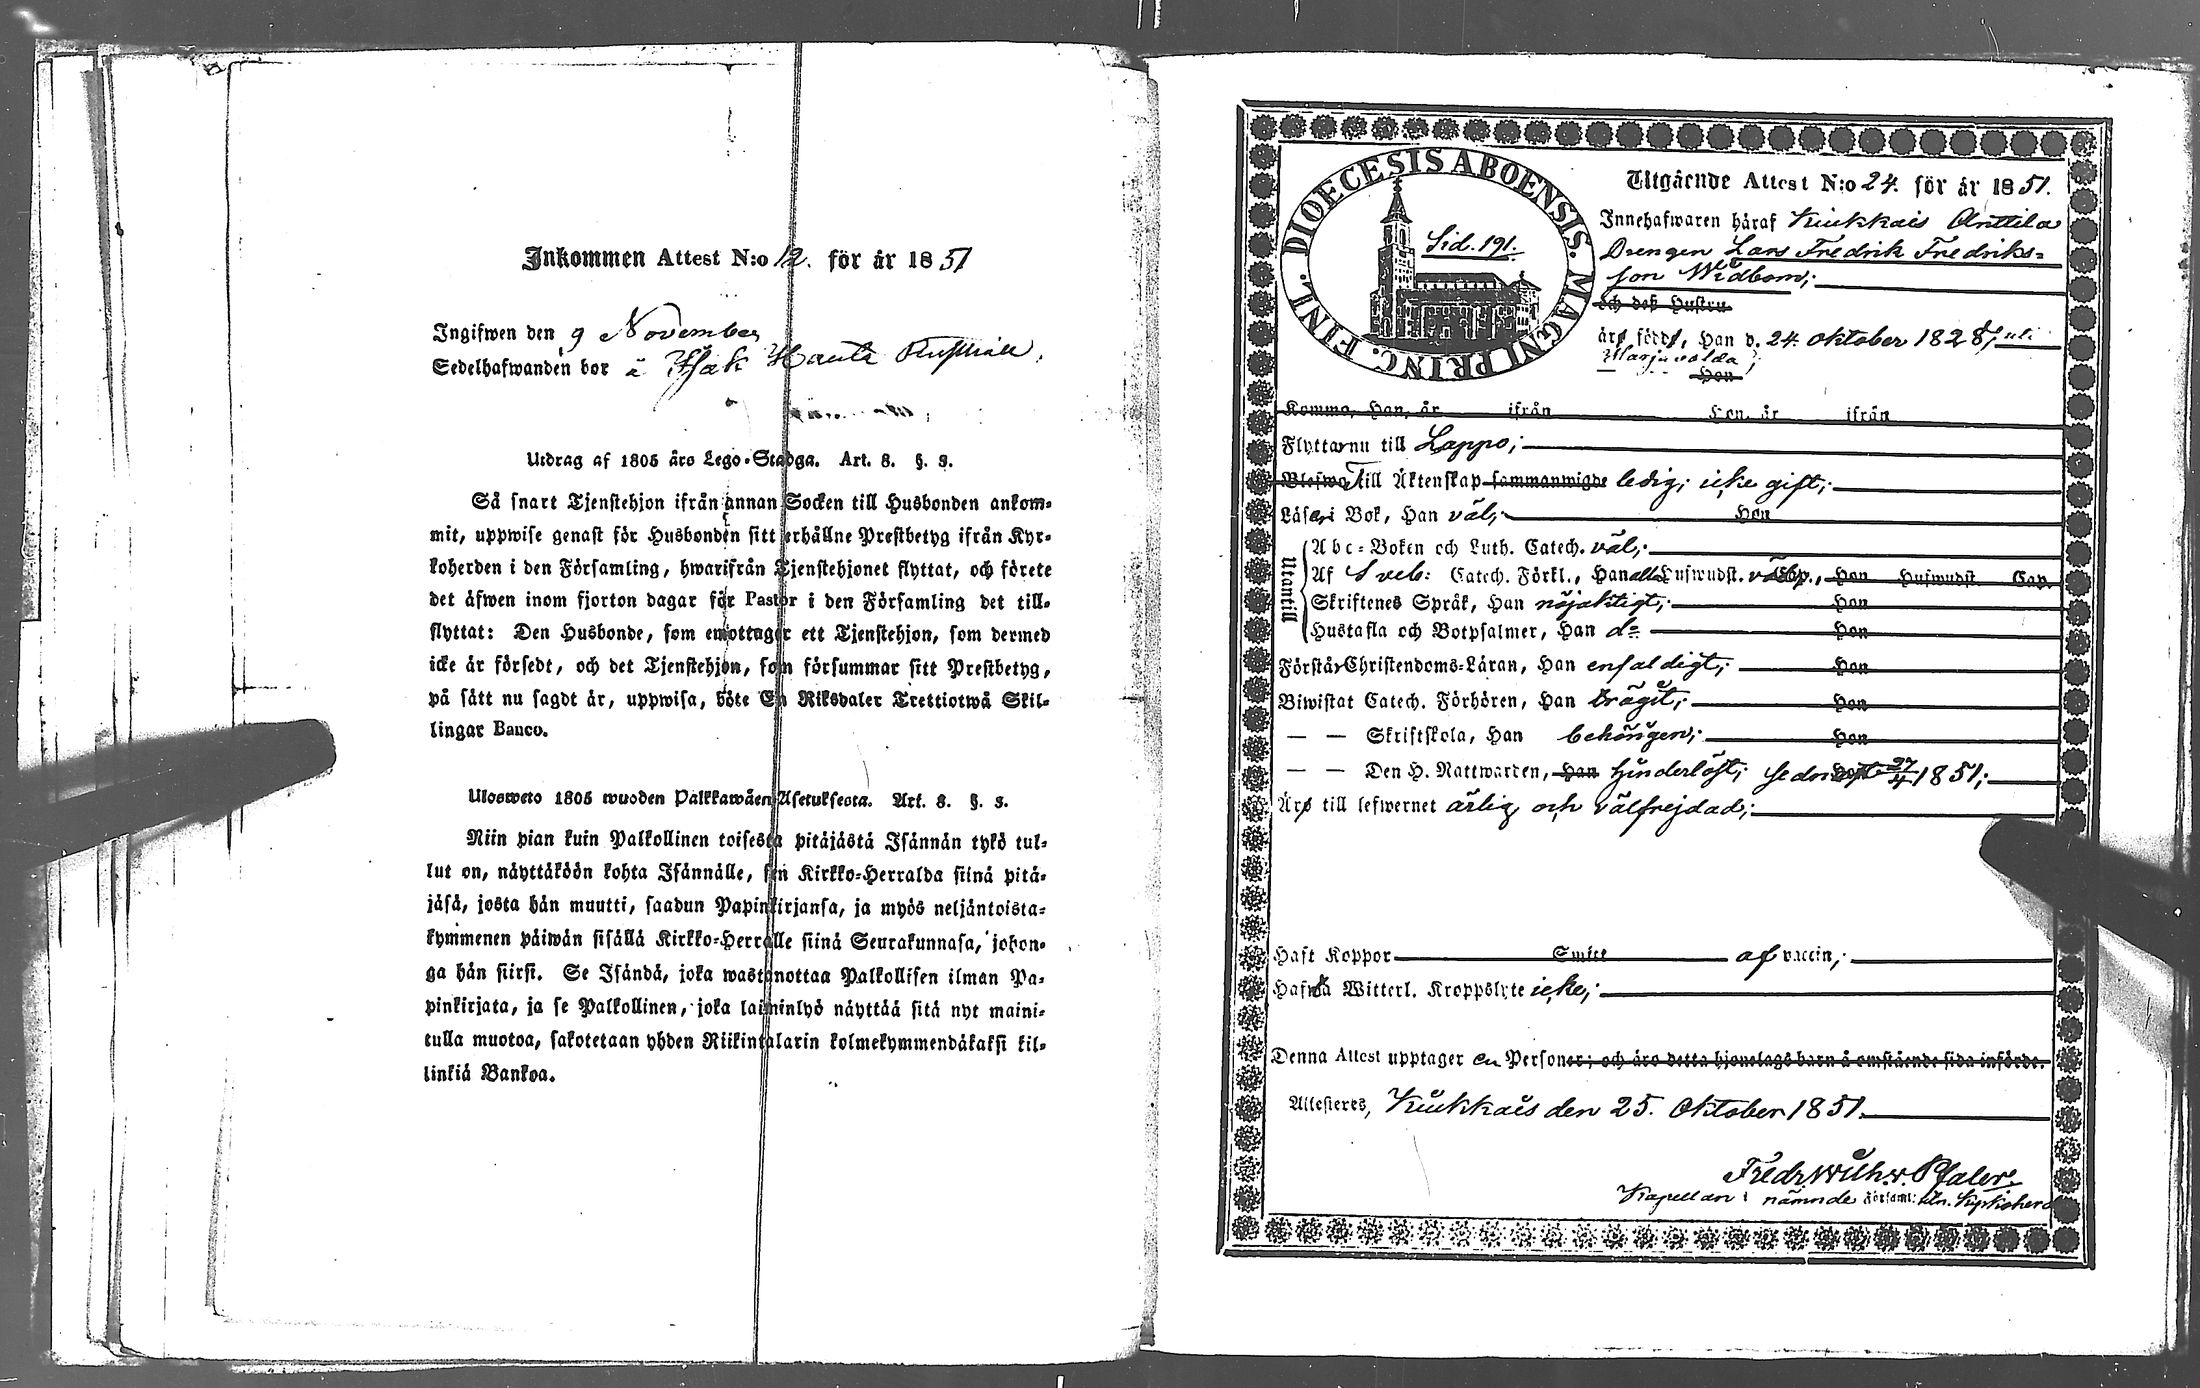 Inkommen Attest N:o 12. för år 1851
Ingifwen den 9 November
Sedelhafwanden bor å Isak
Utdrag af 1805 års Lego-Stadga. Art. 8. §. 3.
Så snart Tjenstehjon ifrån annan Socken till Husbonden ankom-
mit, uppwise genast för Husbonden sitt erhållne Prestbetyg ifrån Kyr-
koherden i den Församling, hwarifrån Tjenstehjonet flyttat, och förete
det äfwen inom fjorton dagar för Pastor i den Församling det till-
flyttat: Den Husbonde, som emottager ett Tjenstehjon, som dermed
icke är försedt, och det Tjenstehjon, som försummar sitt Prestbetyg,
på sätt nu sagdt är, uppwisa, böte En Riksdaler Trettiotwå Skil-
lingar Banco.
Ulosweto 1805 wuoden Palkkawäen Asetuksesta. Art. 8. §. 3.
Niin pian kuin Palkollinen toisesta pitäjästä Isännän tykö tul-
lut on, näyttäköön kohta Isännälle, sen Kirkko-Herralda siinä pitä-
jäsä, josta hän muutti, saadun Papinkirjansa, ja myös neljäntoista-
kymmenen päiwän sisällä Kirkko-Herralle siinä Seurakunnasa, johon-
ga hän siirsi. Se Isändä, joka wastanottaa Palkollisen ilman Pa-
pinkirjata, ja se Palkollinen, joka laiminlyö näyttää sitä nyt maini-
tulla muotoa, sakotetaan yhden Riikintalarin kolmekymmendäkaksi kil-
linkiä Bankoa.
DIOECESIS ABOENSIS. MAGNI PRINC. FINL.
Sid. 191.
Utgående Attest N:o 24. för år 1851.
Innehafwaren häraf Kiukkais Anttila
Drengen Lars Fredrik Fredriks-
son Widbom;
och deß Hustru
är född, Han d. 24. oktober 1828,
Hon
Komne, Han, år ifrån Hon, år ifrån
Flyttar nu till Lappo;
Blefwo Till Äktenskap sammanwigde ledig; icke gift;
Läser i Bok, Han väl; Hon
Utantill
Abc-Boken och Luth. Catech. väl;
Af Sveb: Catech. Förkl., Han alla Hufwudst. väl Cap., Hon Hufwudst. Cap.
Skriftenes Språk, Han nöjaktigt; Hon
Hustafla och Botpsalmer, Han d:o Hon
Förstår Christendoms-Läran, Han enfaldigt; Hon
Biwistat Catech. Förhören, Han trägit; Hon
— — Skriftskola, Han behörigen; Hon
— — Den H. Nattwarden, Han hinderlöst; sednast 27/4 1851;
Är till lefwernet ärlig och välfrejdad;
Haft Koppor Smitt af vaccin;
Hafwa Witterl. Kroppslyte icke;
Denna Attest upptager en Personer; och äro detta hjonelags barn å omstående sida införde.
Attesteres, Kiukkais den 25. Oktober 1851.
Fredr. Wilh. v. Pfaler.
Kapellan i nämnde Församl: Kyrkoherd